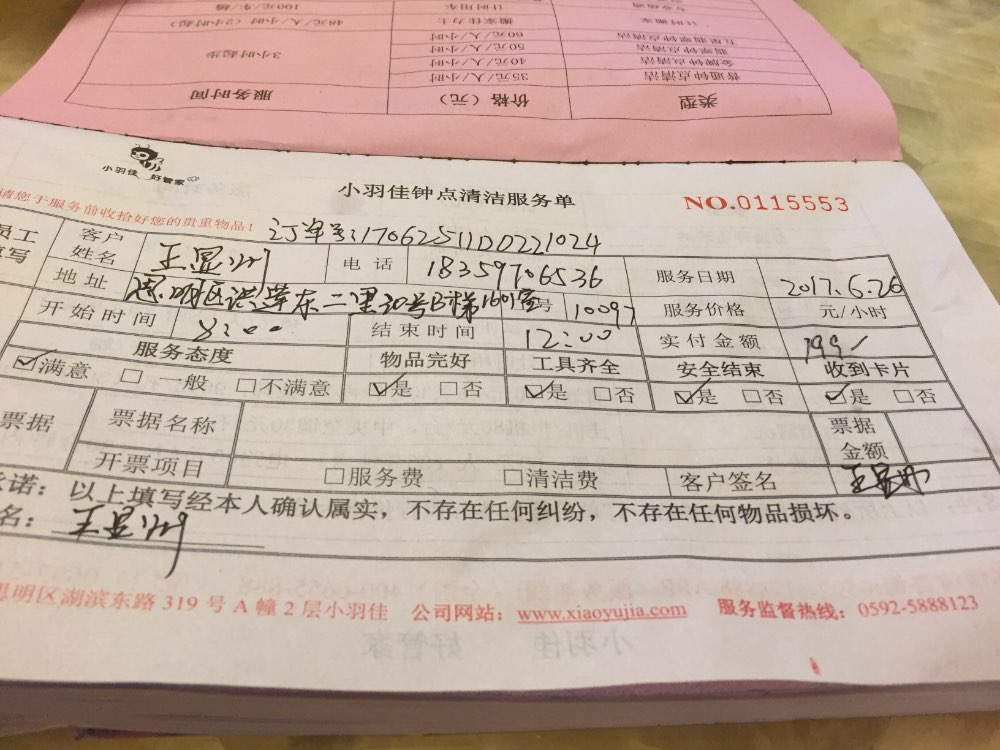 类型 价格(元) 服务时间
普通钟点清洁 35元/人/小时 3小时起步
金牌钟点清洁 40元/人/小时
翡翠钟点清洁 50元/人/小时
五星翡翠钟点清洁 60元/人/小时
搬家佳力士 48元/人/小时(2小时起)
计时用车 100元/车/趟
小羽佳 好管家
小羽佳钟点清洁服务单
NO.0115553
请您于服务前收拾好您的贵重物品!
订单号:170625110D0221024
员工填写
客户姓名 王显 电话 18359706536 服务日期 2017.6.26
地址 思明区洪莲东二里30号B梯1601室 号 10097 服务价格 元/小时
开始时间 8:00 结束时间 12:00 实付金额 199
服务态度 物品完好 工具齐全 安全结束 收到卡片
☑满意 □一般 □不满意 ☑是 □否 ☑是 □否 ☑是 □否 ☑是 □否
票据 票据名称 票据金额
开票项目 □服务费 □清洁费 客户签名 王显
承诺:以上填写经本人确认属实,不存在任何纠纷,不存在任何物品损坏。
名:王显
思明区湖滨东路319号A幢2层小羽佳 公司网站:www.xiaoyujia.com 服务监督热线:0592-5888123